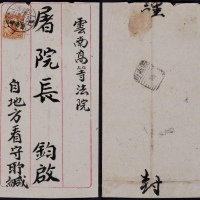 雲南高等法院
屠院長 鈞啟
自地方看守所緘
封